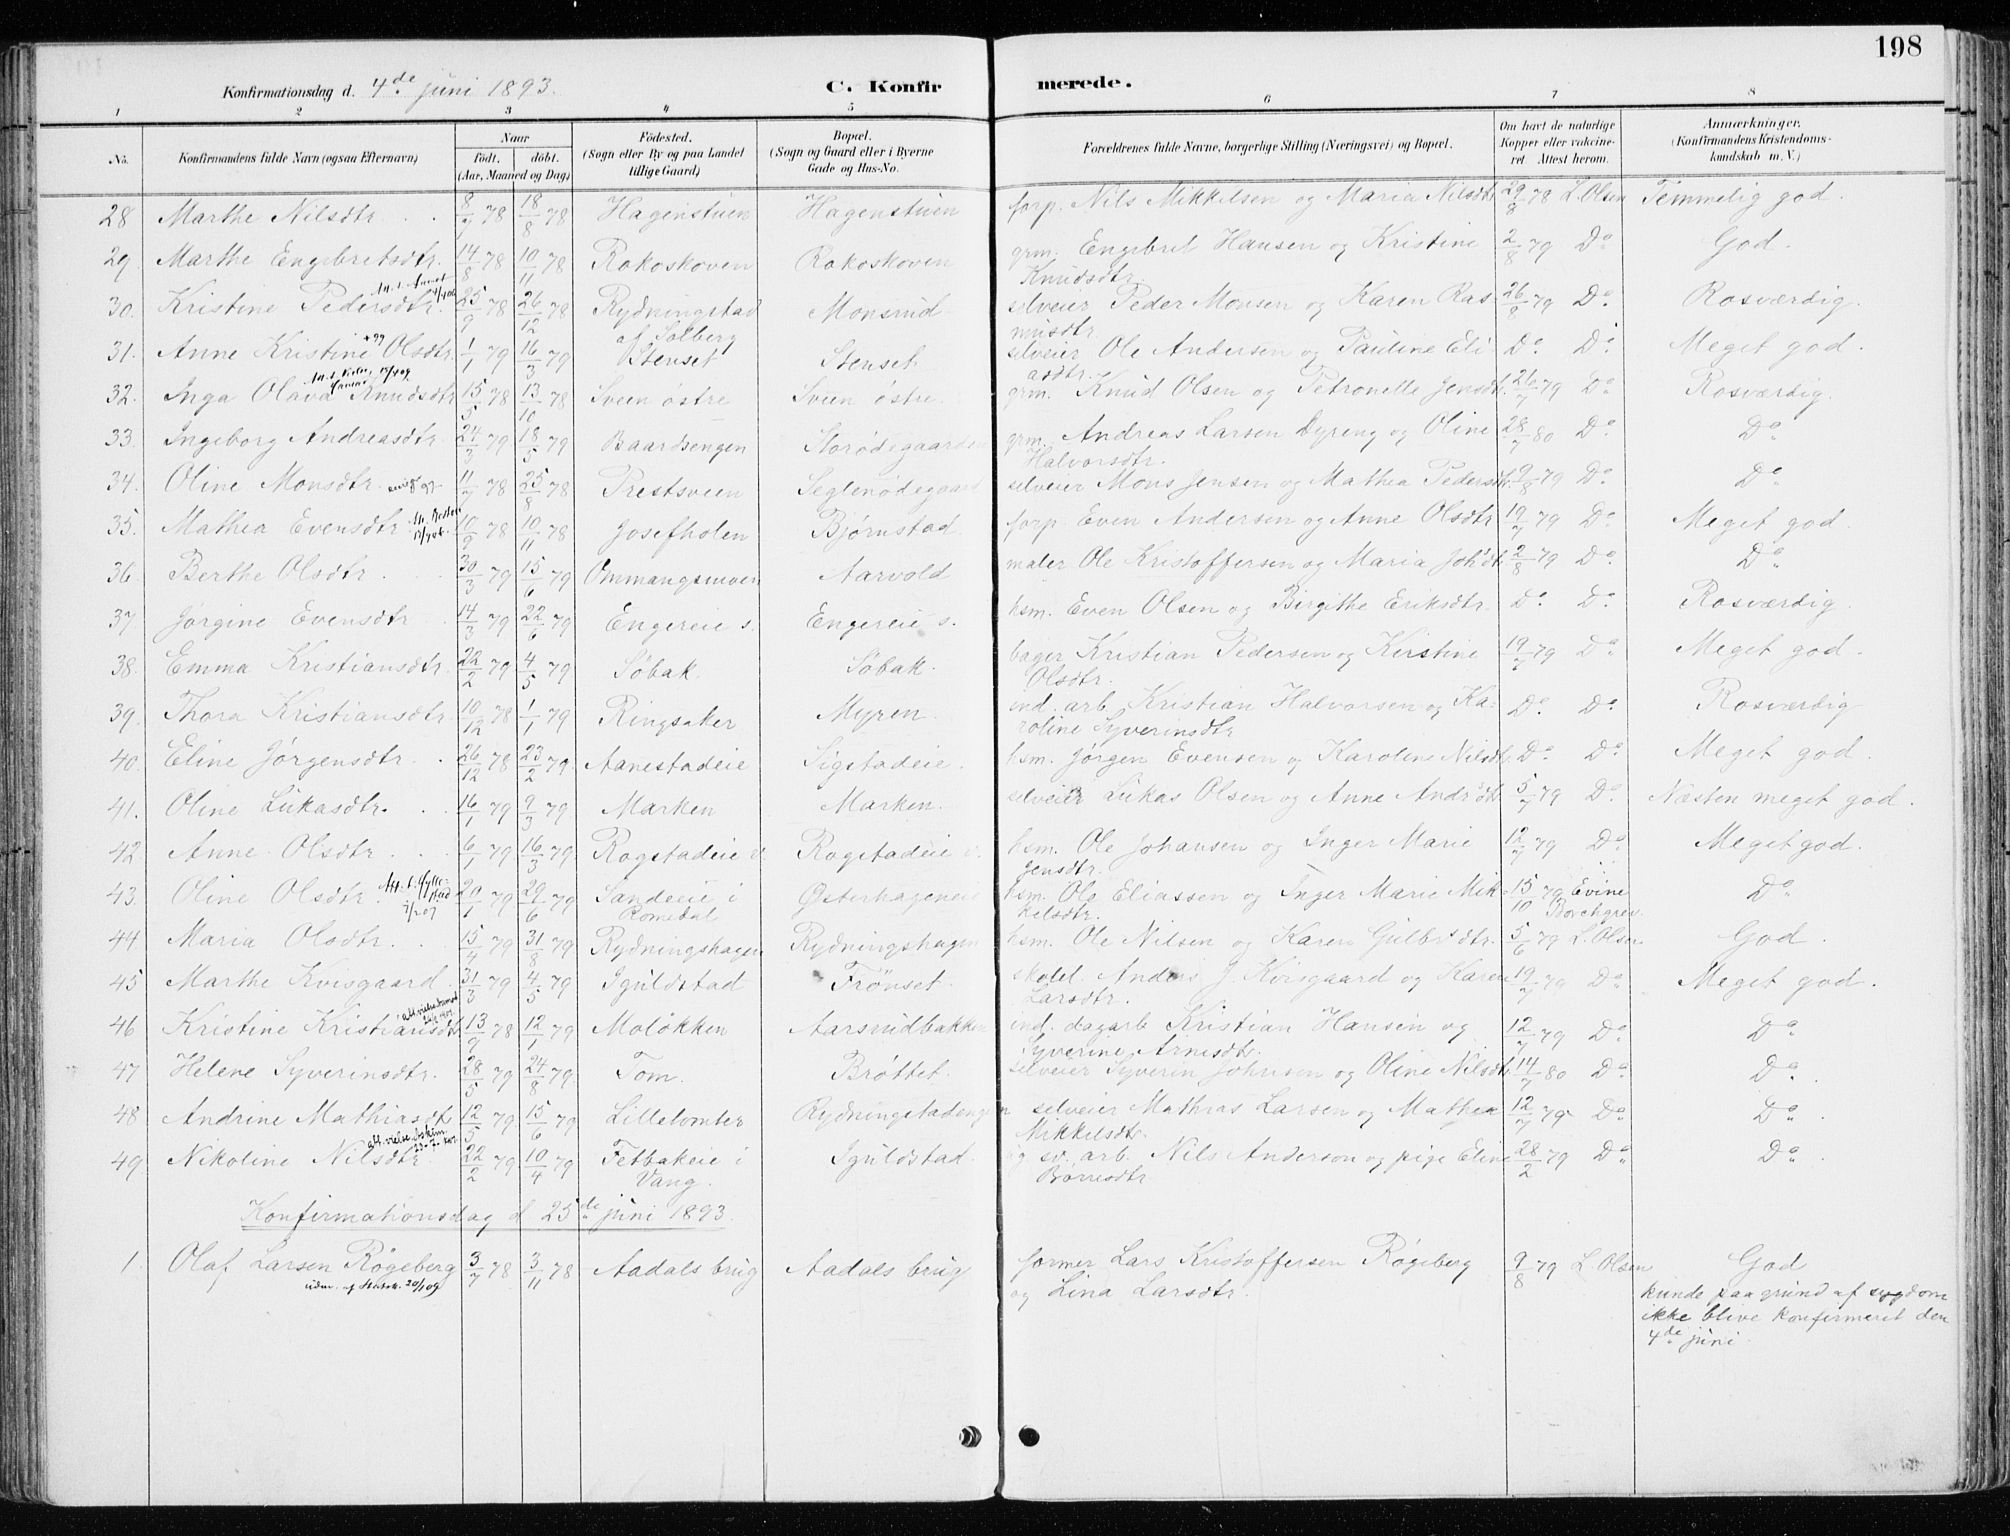 198
Konfirmationsdag d. 4de juni 1893. C. Konfirmerede.
1 2 3 4 5 6 7 8
No. Konfirmandens fulde Navn (ogsaa Efternavn) Naar født. døbt. (Aar, Maaned og Dag) Fødested. (Sogn eller By og paa Landet tillige Gaard) Bopæl. (Sogn og Gaard eller i Byerne Gade og Hus-No. Forældrenes fulde Navne, borgerlige Stilling (Næringsvei) og Bopæl. Om havt de naturlige Kopper eller vakcineret Attest herom. Anmærkninger. (Konfirmandens Kristendomskundskab m. V.)
28 Marthe Nilsdtr 8/7 78 18/8 78 Hagenstuen Hagenstuen forp. Nils Mikkelsen og Maria Nilsdtr 29/8 78 L. Olsen Temmelig god.
29. Marthe Engebretsdtr. 14/8 78 10/11 78 Rokoskoven Rokoskoven grm. Engebret Hansen og Kristine Knudsdtr. 2/8 79 Do God.
30. Kristine Pedersdtr. 25/9 78 26/12 78 Rydningstad af Solberg Monsrud selveier Peder Monsen og Karen Rasmusdtr. 26/9 79 Do Rosværdig.
31. Anne Kristine Olsdtr. 1/1 79 16/3 79 Stenset Stenset. selveier Ole Andersen og Pauline Eliasdtr. Do. Do. Meget god.
32. Inga Olava Knudsdtr 15/5 78 13/10 78 Sveen østre Sveen østre. grm. Knud Olsen og Petronelle Jensdtr. 26/7 79 Do Rosværdig.
33. Ingeborg Andreasdtr. 24/3 79 18/5 79 Baardsengen Storødegaarden grm. Andreas Larsen Dyreng og Oline Halvorsdtr. 28/7 80 Do. Do
34. Oline Monsdtr. 11/7 78 25/8 78 Prestsveen Seglenødegaard selveier Mons Jensen og Mathea Pedersdtr. 9/8 79 Do Do
35. Mathea Evensdtr 10/9 78 10/11 78 Josefholen Bjørnstad. forp. Even Andersen og Anne Olsdtr 19/7 79 Do. Meget god.
36. Berthe Olsdtr. 30/3 79 15/6 79 Ommangsmoen Aarvold maler Ole Kristoffersen og Maria Johsdtr 2/8 79 Do Do
37 Jørgine Evensdtr 14/3 79 22/6 79 Engereie s. Engereie s. hsm. Even Olsen og Birgithe Eriksdtr. Do. Do. Rosværdig.
38. Emma Kristiansdtr. 22/2 79 4/5 79 Søbak. Søbak. bager Kristian Pedersen og Kirstine Olsdtr. 19/7 79 Do Meget god.
39. Thora Kristiansdtr. 10/12 78 1/1 79 Ringsaker Myren. ind. arb. Kristian Halvorsen og Karoline Syverinsdtr Do. Do. Rosværdig
40. Eline Jørgensdtr. 26/12 78 23/2 79. Aanestadeie Sigstadeie. hsm. Jørgen Evensen og Karoline Nilsdtr. Do. Do. Meget god.
41. Oline Lukasdtr. 16/1 79 9/3 79 Marken Marken. selveier Lukas Olsen og Anne Andrsdtr 5/7 79 Do. Næsten meget god.
42 Anne Olsdtr 6/1 79 16/3 79. Rogstadeie v. Rogstadeie v. hsm. Ole Johansen og Inger Marie Jensdtr. 12/7 79 Do Meget god.
43. Oline Olsdtr. 20/1 79 29/6 79 Sandeeie i Romedal Østerhageneie hsm. Ole Eliassen og Inger Marie Mikkelsdtr. 15/10 79. Evine Borchgrev. Do
44. Maria Olsdtr. 15/4 79 31/8 79 Rydningshagen Rydningshagen hsm. Ole Nilsen og Karen Gulbrsdtr. 5/6 79 L. Olsen God.
45 Marthe Kvisgaard 31/3 79 4/5 79 Iguldstad Frønset. skolel. Anders J. Kvisgaard og Karen Larsdtr. 19/7 79 Do Meget god.
46 Kristine Kristiansdtr 13/9 78 12/1 79 Moløkken Aarsrudbakken ind. dagarb. Kristian Hansen og Syverine Arnesdtr. 12/7 79 Do Do
47 Helene Syverinsdtr. 28/5 79 24/8 79. Tom. Brøttet. selveier Syverin Johnsen og Oline Nilsdtr. 14/7 80 Do Do.
48 Andrine Mathiasdtr 12/5 79 15/6 79 Lillelomter Rydningstadengen selveier Mathias Larsen og Mathea Mikkelsdtr. 12/7 79 Do Do.
49. Nikoline Nilsdtr. 22/2 79 10/4 79 Fetbakeie i Vang. Iguldstad. ug sv. arb. Nils Anderson og pige Eline Børresdtr 28/2 79 Do Do
Konfirmationsdag d 25de juni 1893.
1. Olaf Larsen Røgeberg 3/7 78 3/11 78 Aadals brug Aadals brug former Lars Kristoffersen Røgeberg og Lina Larsdtr. 9/8 79 L. Olsen God
kunde paa grund af sygdom
ikke blive konfirmeret den
4de juni.